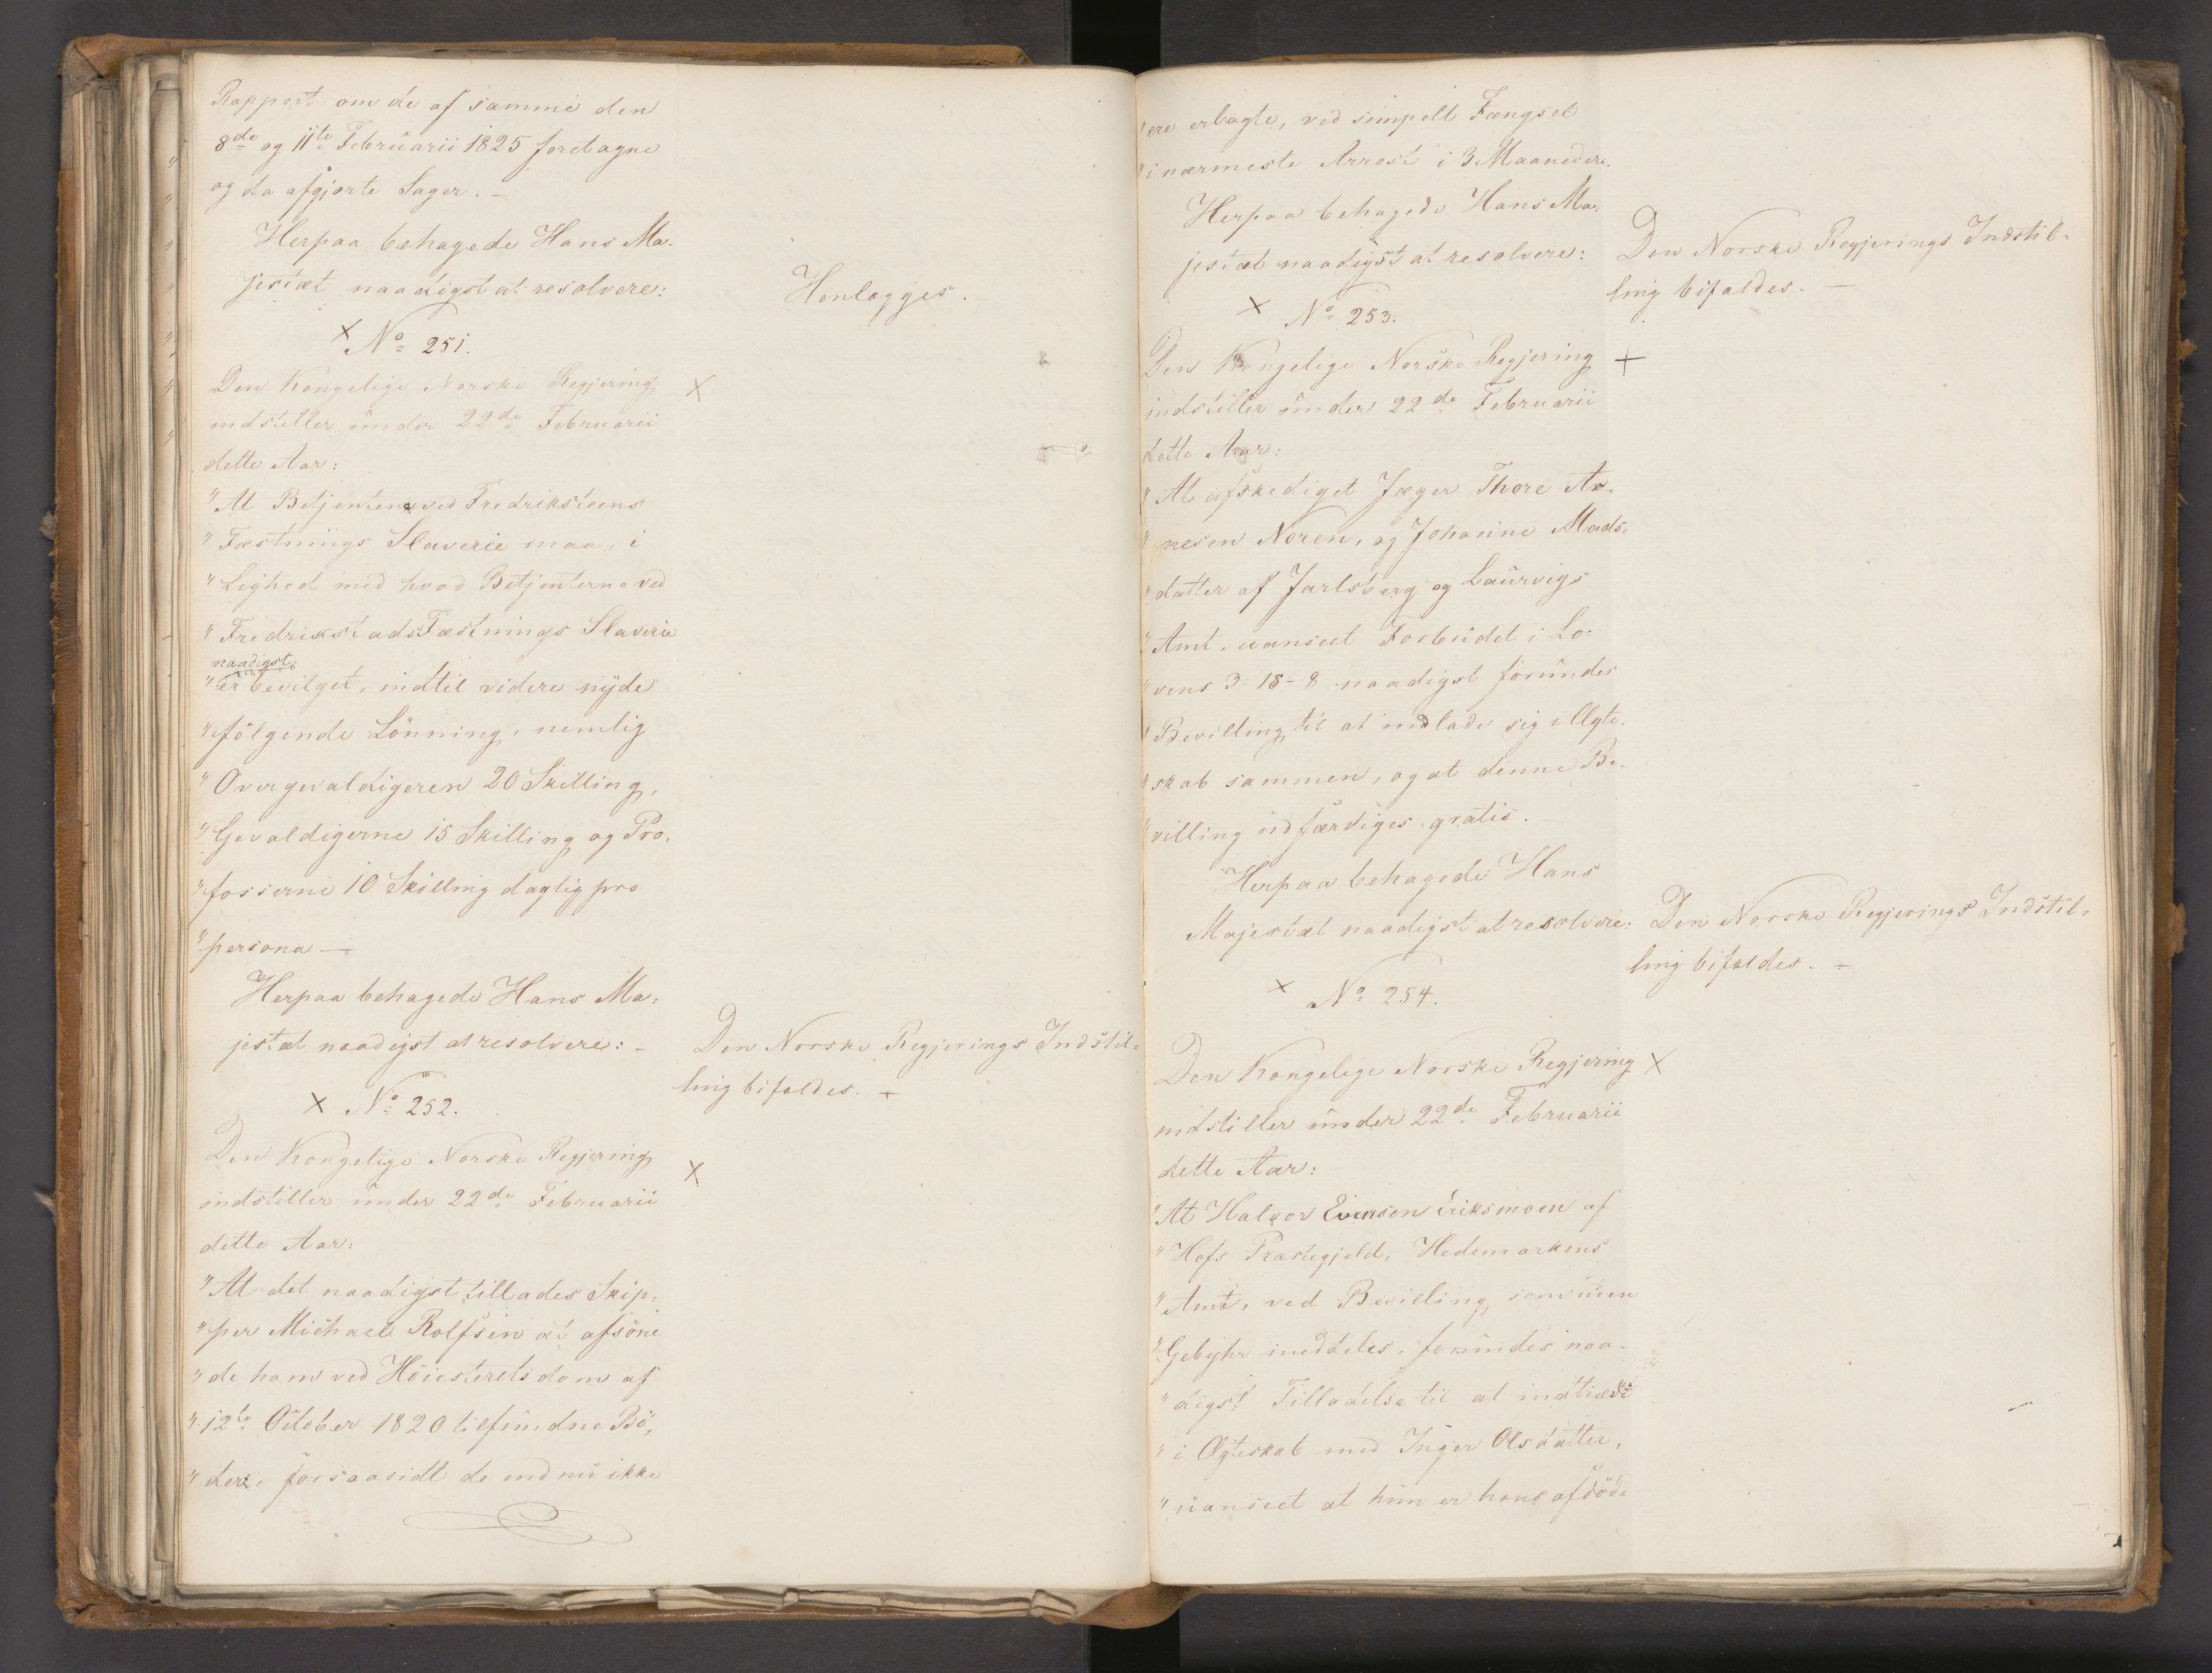 Rapport om de af samme den
8de og 11te Februarii 1825 foretagne
og da afgjorte Sager. -
Herpaa behagede Hans Ma-
jestæt naadigst at resolvere:
Henlægges.
× No 251.
Den Kongelige Norske Regjering ×
indstiller under 22de Februarii
dette Aar:
"At Betjentene ved Fredriksteens
"Fæstnings Slaverie maa, i
"Lighed med hvad Betjenterne ved
"Fredrikstads Fæstnings Slaverie
naadigst
"er bevilget, indtil videre nyde
"følgende Lønning, nemlig
"Overgevaldigeren 20 Skilling,
"Gevaldigerne 15 Skilling og Pro-
"fosserne 10 Skilling daglig pro
"persona —
Herpaa behagede Hans Ma-
jestæt naadigst at resolvere: -
Den Norske Regjerings Indstil-
ling bifaldes. -
× No 252.
Den Kongelige Norske Regjering ×
indstiller under 22de Februarii
dette Aar:
"At det naadigst tillades Skip-
"per Michael Rolfsen at afsone
"de ham ved Höiesterets dom af
"12te October 1820 tilfundne Bö-
"der, forsaavidt de endnu ikke
"ere erlagte, ved simpelt Fængsel
"i nærmeste Arrest i 3 Maaneder.
Herpaa behagede Hans Ma-
jestæt naadigst at resolvere:
Den Norske Regjerings Indstil-
ling bifaldes. —
× No 253.
Den Kongelige Norske Regjering +
indstiller under 22de Februarii
dette Aar:
"At afskediget Jæger Thore Ar-
"nesen Noren, og Johanne Mads-
"datter af Jarlsberg og Laurvigs
"Amt, uanseet Forbudet i Lo-
"vens 3-18-8 naadigst forundes
"Bevilling til at indlade sig i Ægte-
"skab sammen, og at denne Be-
"villing udfærdiges gratis.
Herpaa behagede Hans
Majestæt naadigst at resolvere:
Den Norske Regjerings Indstil-
ling bifaldes. -
× No 254.
Den Kongelige Norske Regjering ×
indstiller under 22de Februarii
dette Aar:
"At Halvor Evensen Eriksmoen af
"Hofs Præstegjeld, Hedemarkens
"Amt, ved Bevilling, som uden
"Gebyhr meddeles, forundes naa-
"digst Tilladelse til at indtræde
"i Ægteskab med Inger Olsdatter,
"uanseet at hun er hans afdöde